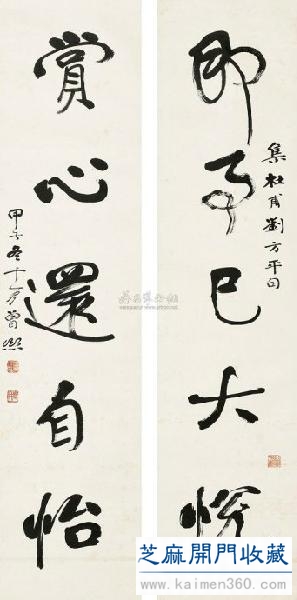 集杜甫劉方平句
即事已大
賞心還自怡
甲子冬十月曾熙
芝麻開門收藏
www.kaimen360.com